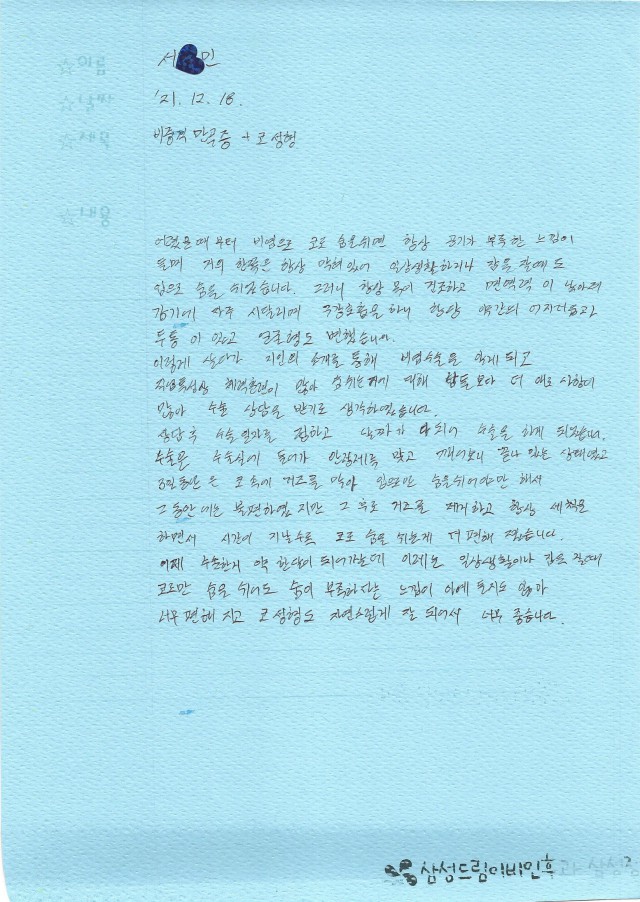 서 민
'21. 12. 18.
비중격 만곡증 + 코 성형
어렸을때 부터 비염으로 코로 숨을쉬면 항상 공기가 부족한 느낌이
들며 거의 한쪽은 항상 막혀있어 일상생활하거나 잠을 잘때도
입으로 숨을 쉬었습니다. 그러니 항상 목이 건조하고 면역력이 낮아져
감기에 자주 시달리며 구강호흡을 하니 항상 약간의 어지러움과
두통이 있고 얼굴형도 변했습니다.
이렇게 살다가 지인의 소개를 통해 비염수술을 알게 되고
직업특성상 체력훈련이 많아 숨쉬는거에 대해 남들보다 더 애로사항이
많아 수술 상담을 받기로 생각하였습니다.
상담 후 수술일자를 정하고 날짜가 다 되어 수술을 하게 되었습니다.
수술은 수술실에 들어가 안정제를 맞고 깨어보니 끝나 있는 상태였고
3일동안은 코 속에 거즈를 막아 입으로만 숨을쉬어야만 해서
그 동안에는 불편하였지만 그 후로 거즈를 제거하고 항상 세척을
하면서 시간이 지날수록 코로 숨을 쉬는게 더 편해 졌습니다.
이제 수술한지 약 한달이 되어가는데 이제는 일상생활이나 잠을 잘때
코로만 숨을 쉬어도 숨이 부족하다는 느낌이 아예 들지도 않아
너무 편해 지고 코 성형도 자연스럽게 잘 되어서 너무 좋습니다.
삼성드림이비인후